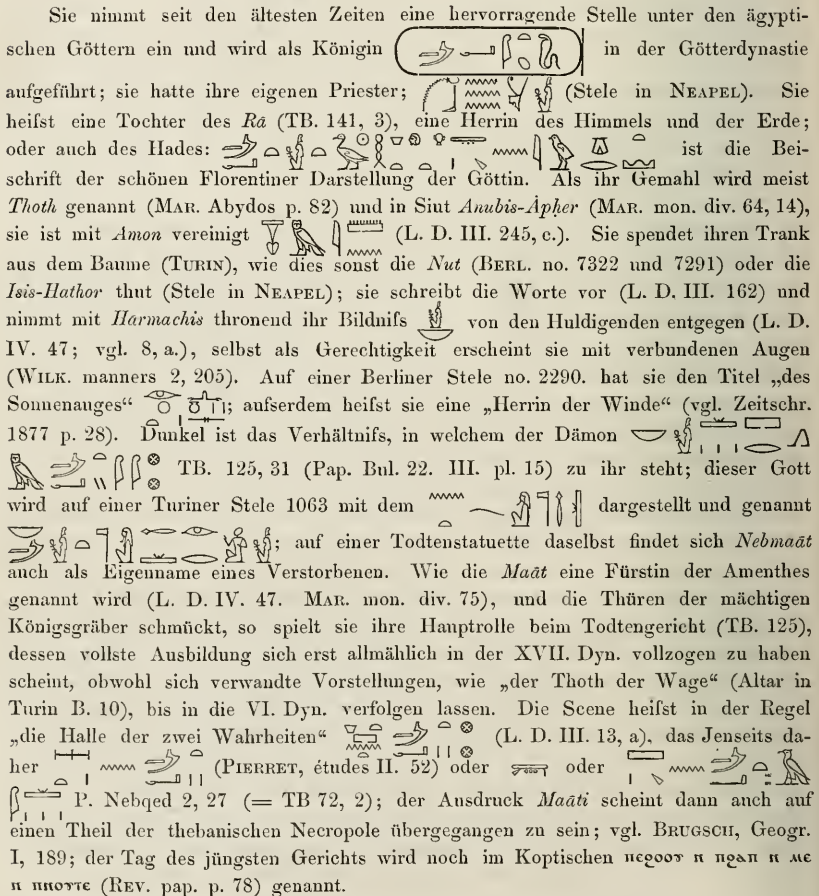 Sie nimmt seit den ältesten Zeiten eine hervorragende Stelle unter den ägypti-
schen Göttern ein und wird als Königin in der Götterdynastie
aufgeführt; sie hatte ihre eigenen Priester; (Stele in NEAPEL). Sie
heifst eine Tochter des Râ (TB. 141, 3), eine Herrin des Himmels und der Erde;
oder auch des Hades: ist die Bei-
schrift der schönen Florentiner Darstellung der Göttin. Als ihr Gemahl wird meist
Thoth genannt (MAR. Abydos p. 82) und in Siut Anubis-Åpher (MAR. mon. div. 64, 14),
sie ist mit Amon vereinigt (L. D. III. 245, c.). Sie spendet ihren Trank
aus dem Baume (TURIN), wie dies sonst die Nut (BERL. no. 7322 und 7291) oder die
Isis-Hathor thut (Stele in NEAPEL); sie schreibt die Worte vor (L. D. III. 162) und
nimmt mit Harmachis thronend ihr Bildnifs von den Huldigenden entgegen (L. D.
IV. 47; vgl. 8, a.), selbst als Gerechtigkeit erscheint sie mit verbundenen Augen
(WILK. manners 2, 205). Auf einer Berliner Stele no. 2290. hat sie den Titel „des
Sonnenauges“ ; aufserdem heifst sie eine „Herrin der Winde“ (vgl. Zeitschr.
1877 p. 28). Dunkel ist das Verhältnifs, in welchem der Dämon
TB. 125, 31 (Pap. Bul. 22. III. pl. 15) zu ihr steht; dieser Gott
wird auf einer Turiner Stele 1063 mit dem dargestellt und genannt
; auf einer Todtenstatuette daselbst findet sich Nebmaāt
auch als Eigenname eines Verstorbenen. Wie die Maāt eine Fürstin der Amenthes
genannt wird (L. D. IV. 47. MAR. mon. div. 75), und die Thüren der mächtigen
Königsgräber schmückt, so spielt sie ihre Hauptrolle beim Todtengericht (TB. 125),
dessen vollste Ausbildung sich erst allmählich in der XVII. Dyn. vollzogen zu haben
scheint, obwohl sich verwandte Vorstellungen, wie „der Thoth der Wage“ (Altar in
Turin B. 10), bis in die VI. Dyn. verfolgen lassen. Die Scene heifst in der Regel
„die Halle der zwei Wahrheiten“ (L. D. III. 13, a), das Jenseits da-
her (PIERRET, études II. 52) oder oder
P. Nebqed 2, 27 (= TB 72, 2); der Ausdruck Maāti scheint dann auch auf
einen Theil der thebanischen Necropole übergegangen zu sein; vgl. BRUGSCH, Geogr.
I, 189; der Tag des jüngsten Gerichts wird noch im Koptischen ⲡⲉϩⲟⲟⲩ ⲛ ⲡϩⲁⲡ ⲛ ⲙⲉ
ⲛ ⲡⲛⲟⲩⲧⲉ (REV. pap. p. 78) genannt.